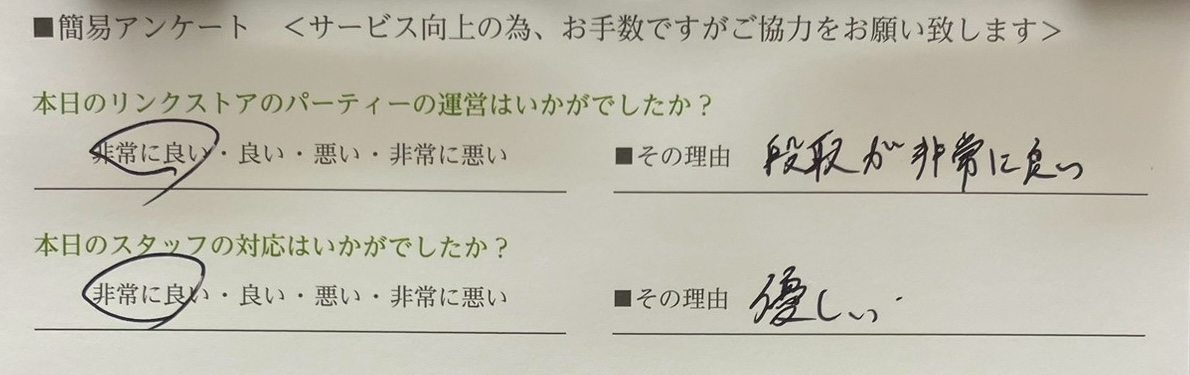 ■簡易アンケート <サービス向上の為、お手数ですがご協力をお願い致します>
本日のリンクストアのパーティーの運営はいかがでしたか？
非常に良い・良い・悪い・非常に悪い ■その理由 段取が非常に良い
本日のスタッフの対応はいかがでしたか？
非常に良い・良い・悪い・非常に悪い ■その理由 優しい